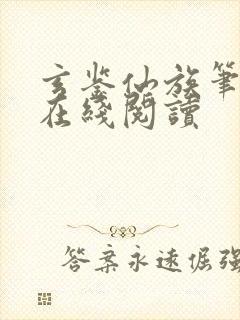 玄鉴仙族筆
在綫閱讀
答案永遠倔強